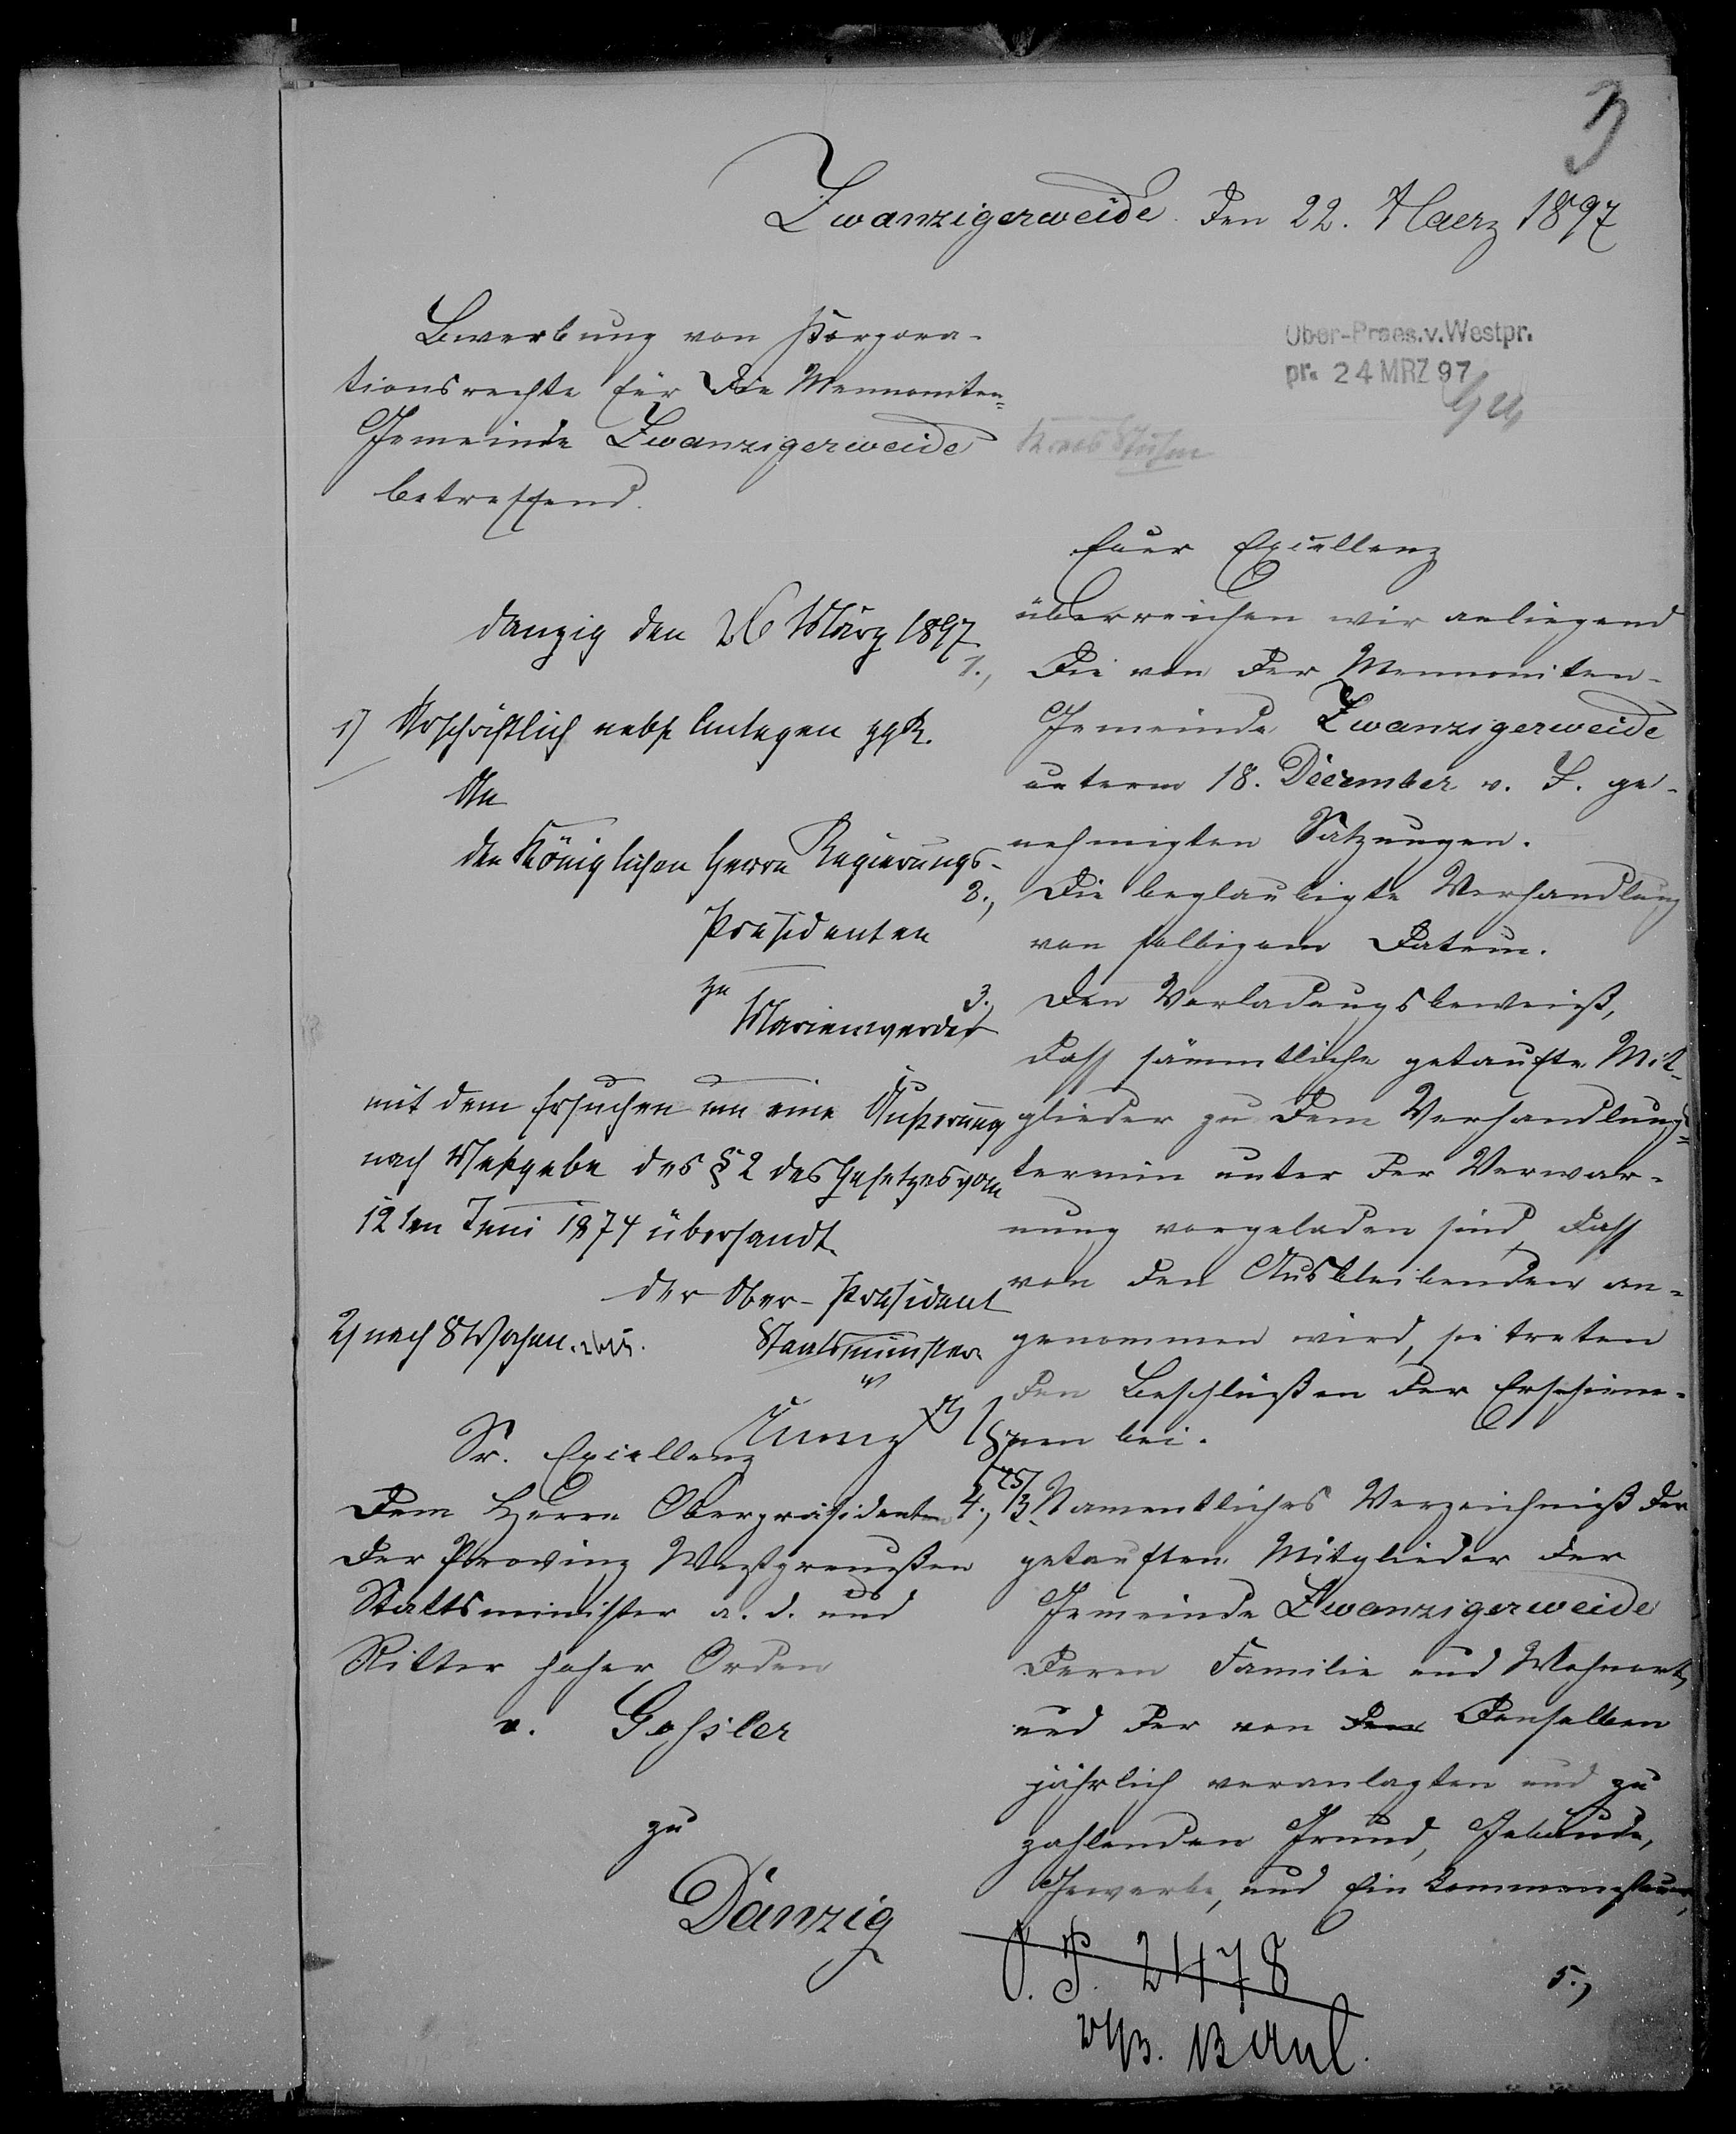 3
Zwanzigerweide den 22. Maerz 1897
Ober-Praes.v.Westpr.
pr. 24 MRZ 97
Bewerbung von Korpora-
tionsrechte für die Mennoniten=
Gemeinde Zwanzigerweide
betreffend.
Kreis Stuhm
Danzig den 26 März 1897
1) Urschriftlich nebst Anlagen
An
den Königlichen Herrn Regierungs-
Präsidenten
zu
Marienwerder
mit dem Ersuchen um eine Äußerung
nach Maßgabe des § 2 des Gesetzes vom
12ten Juni 1874 übersandt.
Der Ober-Präsident
Staatsminister
2) nach 8 Wochen.
Sr. Excellenz
Dem Herrn Oberpräsidenten
der Provinz Westpreußen
Staltsminister a. d. und
Ritter hoher Orden
v. Goßler
zu
Danzig
Euer Excellenz
überreichen wir anliegend
1., Die von der Mennoniten-
Gemeinde Zwanzigerweide
unterm 18. December v. J. ge-
nehmigten Satzungen.
2., Die beglaubigte Verhandlung
von selbigem Datum.
3., Den Vorladungsbeweiß,
dass sämmtliche getaufte Mit-
glieder zu dem Verhandlungs=
termin unter der Verwar-
nung vorgeladen sind, dass
von den Ausbleibenden an-
genommen wird, sie treten
den Beschlüßen der Erschiene-
nen bei.
4., Namentliches Verzeichniß der
getauften Mitglieder der
Gemeinde Zwanzigerweide
deren Familie und Wohnort,
und der von den Denselben
jährlich veranlagten und zu
zahlenden Grund, Gebäude,
Gewerbe, und Ein Kommensteuer,
5.,
O. P. 2478